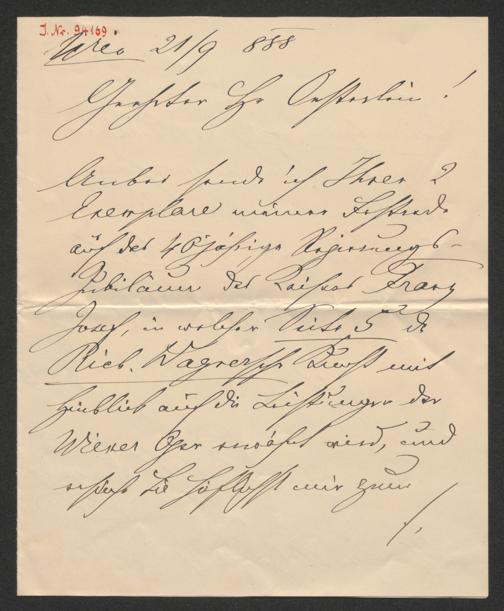 J. Nr. 94169
21/9 888
Geehrter Hr Oesterlein!
Anbei sende ich Ihnen 2
Exemplare meiner Festrede
auf das 40jährige Regierungs-
Jubiläum des Kaisers Franz
Josef, in welcher Seite 5 die
Rich. Wagner'sche Kunst mit
Hinblick auf die Leistungen der
Wiener Oper erwähnt wird, und
ersuche Sie höflichst mir zum